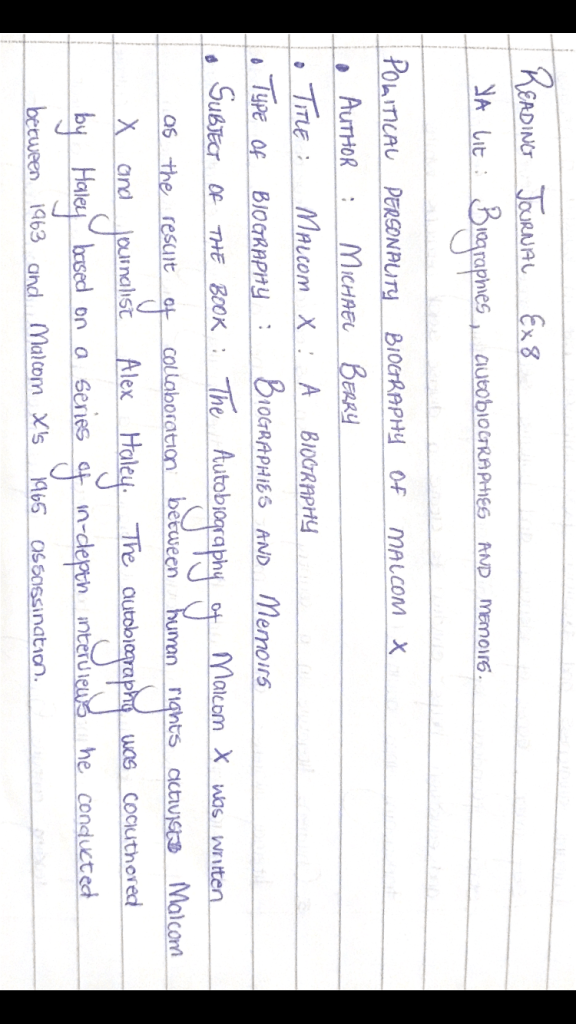 READING JOURNAL Ex 8
YA Lit : Biographies, autobiographies AND memoirs.
POLITICAL PERSONALITY BIOGRAPHY OF MALCOM X
• AUTHOR : MICHAEL BERRY
• TITLE : MALCOM X : A BIOGRAPHY
• TYPE OF BIOGRAPHY : BIOGRAPHIES AND MEMOIRS
• SUBJECT OF THE BOOK : The Autobiography of Malcom X was written
as the result of collaboration between human rights activist Malcom
X and journalist Alex Haley. The autobiography was coauthored
by Haley based on a series of in-depth interviews he conducted
between 1963 and Malcom X's 1965 assassination.